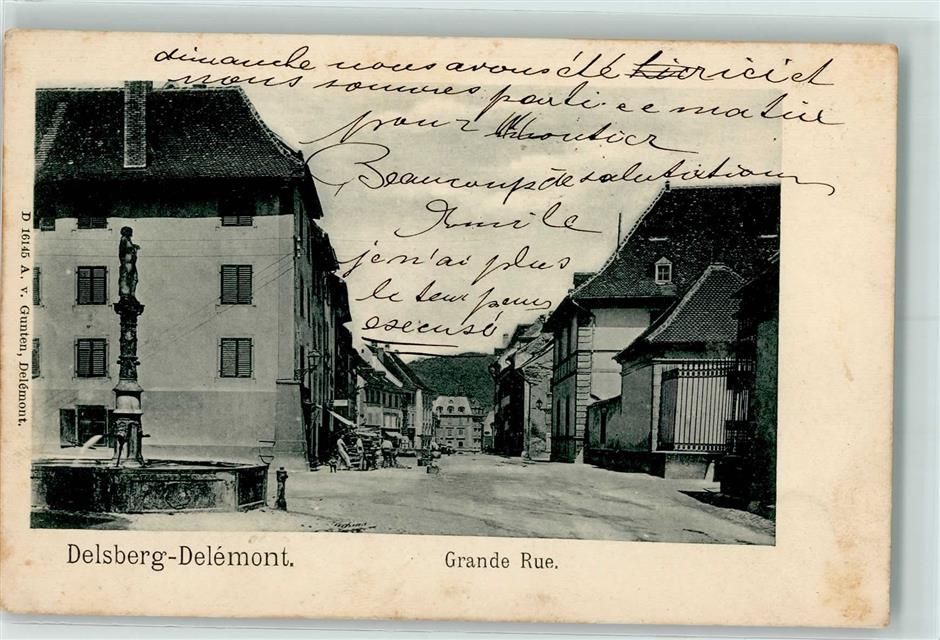 dimanche nous avons été ici et
nous sommes parti ce matin
pour Moutier
Beaucoup de salutation
je n'ai plus
le
D 16145 A. v. Gunten, Delémont.
Delsberg-Delémont.
Grande Rue.